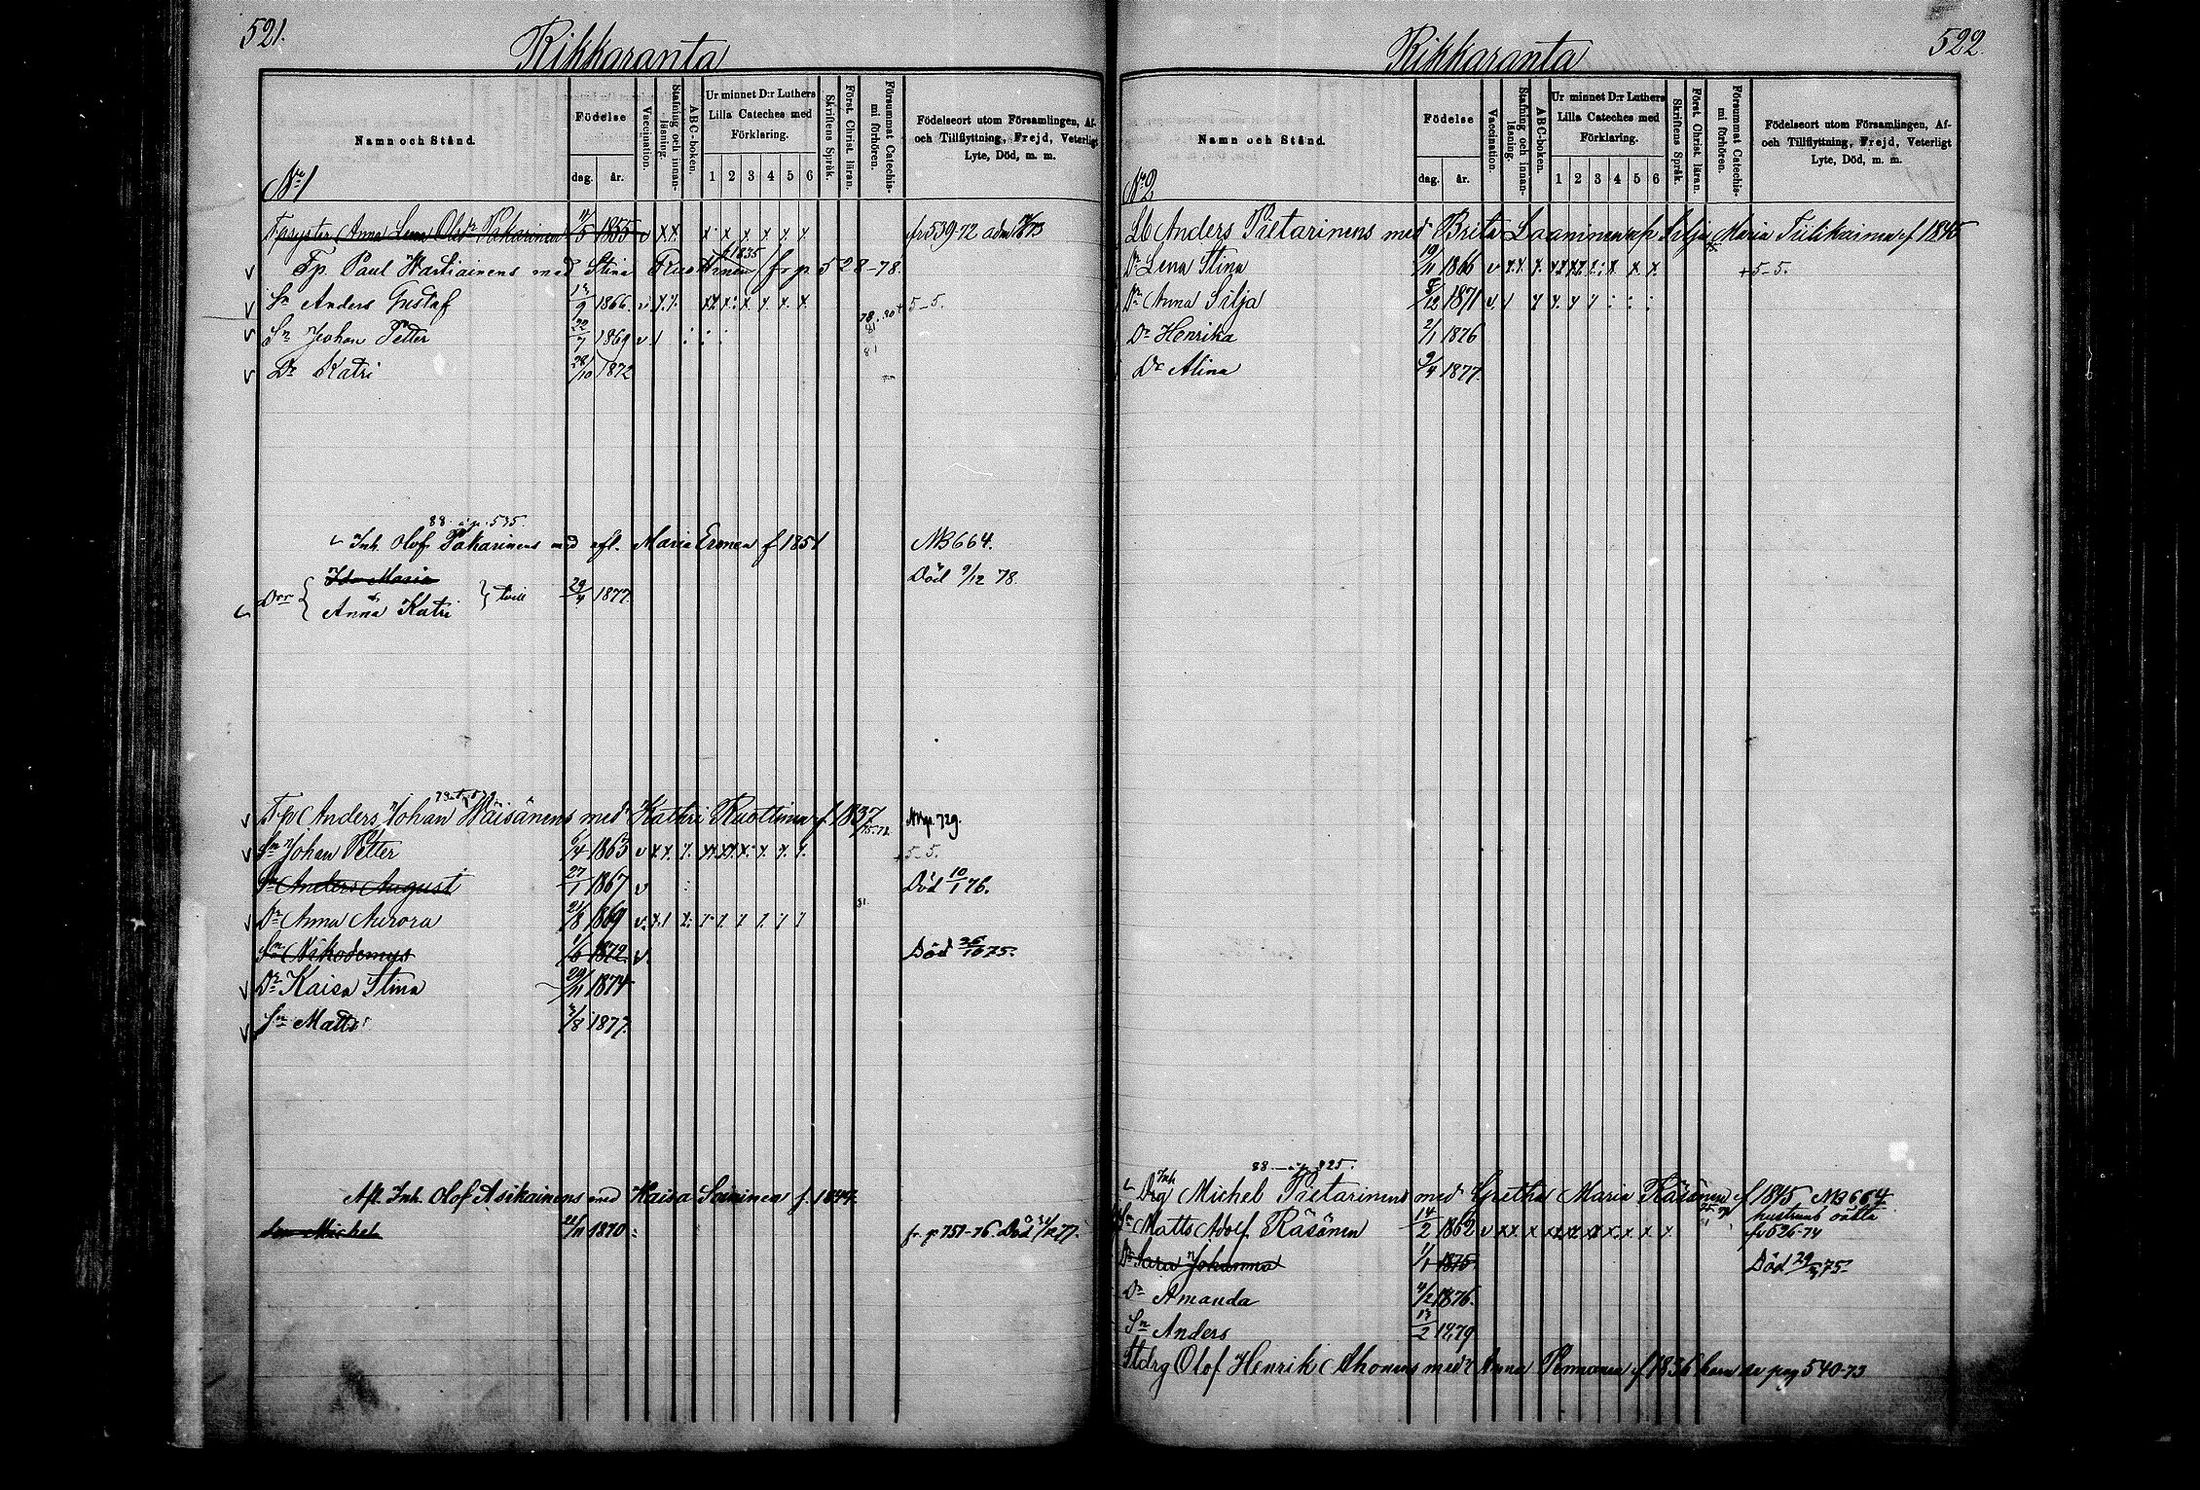 521.
Rikkaranta
Namn och Stånd.
Födelse
dag. år.
Vaccination.
Stafning och innanläsning.
ABC-boken.
Ur minnet D:r Luthers
Lilla Cateches med
Förklaring.
1 2 3 4 5 6
Skriftens Språk.
Först. Christ. läran.
Försummat Catechismi förhören.
Födelseort utom Församlingen, Af-
och Tillflyttning, Frejd, Veterligt
Lyte, Död, m. m.
No 1
Anna Lena Olsdr Pakarinen 11/5 1855 v x x x x x x x x fr 539-72
1835
Fp. Paul Hartikainens med Stina fr p 528-78.
Sn Anders Gustaf 1866 v x x + 5-5.
Sn Johan Petter 22/7 1869 v
Dr Katri 28/10 1872
88 i p. 535.
Inh. Olof Pakarinens med afl. Maria Eronen f 1851 NB 664.
Ida Maria Död 9/12 78.
Drr tvill 29/4 1877.
Anna Katri
Fp Anders Johan Väisänens med Kathri Ruottinen f. 1837 729.
Sn Johan Petter 6/4 1863 v x x + 5-5.
Sn Anders August 27/1 1867 v Död 10/1 76.
Dr Anna Aurora 21/8 1869 v
Sn Nikodemus 1/6 1872 v. Död 26/10 75.
Dr Kaisa Stina 29/11 1874
Sn Matts /8 1877.
Afl. Inh. Olof Asikainens med Kaisa Soininen f. 1834.
Son Michel 22/11 1870 fr. p 751-76. Död 77.
522.
Rikkaranta
Namn och Stånd.
Födelse
dag. år.
Vaccination.
Stafning och innanläsning.
ABC-boken.
Ur minnet D:r Luthers
Lilla Cateches med
Förklaring.
1 2 3 4 5 6
Skriftens Språk.
Först. Christ. läran.
Försummat Catechismi förhören.
Födelseort utom Församlingen, Af-
och Tillflyttning, Frejd, Veterligt
Lyte, Död, m. m.
No 2
Lb Anders Pietarinens med Brita Laaninen Silja Maria Tiilikainen f 1845
Dr Lena Stina 19/11 1866 v x x + 5-5.
Dr Anna Silja 8/12 1871 v
Dr Henrika 2/1 1876
Dr Alina 9/4 1877.
88 i p 825.
Inh
Drg Michel Pietarinens med Gretha Maria Räsänen f 1845 NB 664
hustruns oäkta
Sn Matts Adolf Räsänen 14/2 1862 v x x x fr 526-74
Dr Sara Johanna 1/1 1875 Död 29/3 75.
Dr Amanda 4/2 1876.
Sn Anders 13/2 1879
Stdrg Olof Henrik Ahonens med Anna Pennanen f 1836 pag 540-73